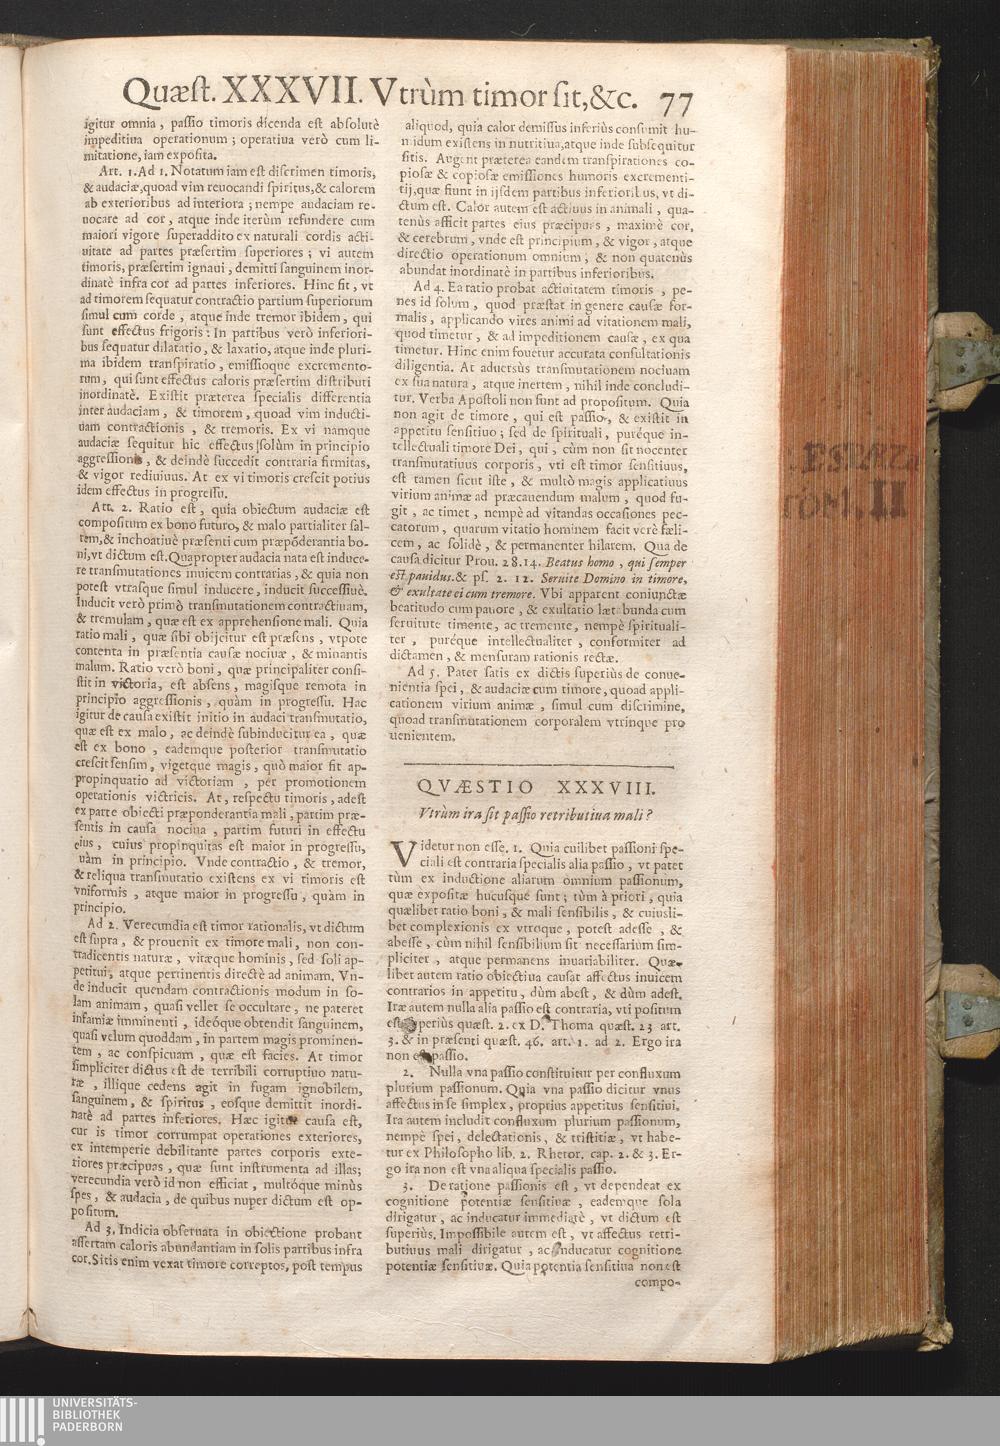 Quæst. XXXVII. Vtrùm timor sit, &c. 77
igitur omnia, passio timoris dicenda est absolutè
impeditiua operationum; operatiua verò cum li-
mitatione, iam exposita.
Art. 1. Ad 1. Notatum iam est discrimen timoris,
& audaciæ, quoad vim reuocandi spiritus, & calorem
ab exterioribus ad interiora; nempe audaciam re-
uocare ad cor, atque inde iterùm refundere cum
maiori vigore superaddito ex naturali cordis acti-
uitate ad partes præsertim superiores; vi autem
timoris, præsertim ignaui, demitti sanguinem inor-
dinatè infra cor ad partes inferiores. Hinc fit, vt
ad timorem sequatur contractio partium superiorum
simul cum corde, atque inde tremor ibidem, qui
sunt effectus frigoris: In partibus verò inferiori-
bus sequatur dilatatio, & laxatio, atque inde pluri-
ma ibidem transpiratio, emissioque excremento-
rum, qui sunt effectus caloris præsertim distributi
inordinatè. Existit præterea specialis differentia
inter audaciam, & timorem, quoad vim inducti-
uam contractionis, & tremoris. Ex vi namque
audaciæ sequitur hic effectus solùm in principio
aggressionis, & deindè succedit contraria firmitas,
& vigor rediuiuus. At ex vi timoris crescit potius
idem effectus in progressu.
Art. 2. Ratio est, quia obiectum audaciæ est
compositum ex bono futuro, & malo partialiter sal-
tem, & inchoatiuè præsenti cum præpōderantia bo-
ni, vt dictum est. Quapropter audacia nata est induce-
re transmutationes inuicem contrarias, & quia non
potest vtrasque simul inducere, inducit successiuè.
Inducit verò primò transmutationem contractiuam,
& tremulam, quæ est ex apprehensione mali. Quia
ratio mali, quæ sibi obijcitur est præsens, vtpote
contenta in præsentia causæ nociuæ, & minantis
malum. Ratio verò boni, quæ principaliter consi-
stit in victoria, est absens, magisque remota in
principio aggressionis, quàm in progressu. Hac
igitur de causa existit initio in audaci transmutatio,
quæ est ex malo, ac deindè subinducitur ea, quæ
est ex bono, eademque posterior transmutatio
crescit sensim, vigetque magis, quò maior fit ap-
propinquatio ad victoriam, per promotionem
operationis victricis. At, respectu timoris, adest
ex parte obiecti præponderantia mali, partim præ-
sentis in causa nociua, partim futuri in effectu
eius, cuius propinquitas est maior in progressu,
uàm in principio. Vnde contractio, & tremor,
& reliqua transmutatio existens ex vi timoris est
vniformis, atque maior in progressu, quàm in
principio.
Ad 2. Verecundia est timor rationalis, vt dictum
est supra, & prouenit ex timore mali, non con-
tradicentis naturæ, vitæque hominis, sed soli ap-
petitui, atque pertinentis directè ad animam. Vn-
de inducit quendam contractionis modum in so-
lam animam, quasi vellet se occultare, ne pateret
infamiæ imminenti, ideóque obtendit sanguinem,
quasi velum quoddam, in partem magis prominen-
tem, ac conspicuam, quæ est facies. At timor
simpliciter dictus est de terribili corruptiuo natu-
ræ, illique cedens agit in fugam ignobilem,
sanguinem, & spiritus, eosque demittit inordi-
natè ad partes inferiores. Hæc igitur causa est,
cur is timor corrumpat operationes exteriores,
ex intemperie debilitante partes corporis exte-
riores præcipuas, quæ sunt instrumenta ad illas;
verecundia verò id non efficiat, multóque minùs
spes, & audacia, de quibus nuper dictum est op-
positum.
Ad 3. Indicia obseruata in obiectione probant
assertam caloris abundantiam in solis partibus infra
cor. Sitis enim vexat timore correptos, post tempus
aliquod, quia calor demissus inferiùs consumit hu-
midum existens in nutritiua, atque inde subsequitur
sitis. Augent præterea eandem transpirationes co-
piosæ & copiosæ emissiones humoris excrementi-
tij, quæ fiunt in ijsdem partibus inferioribus, vt di-
ctum est. Calor autem est actiuus in animali, qua-
tenùs afficit partes eius præcipuas, maximè cor,
& cerebrum, vnde est principium, & vigor, atque
directio operationum omnium, & non quatenùs
abundat inordinatè in partibus inferioribus.
Ad 4. Ea ratio probat actiuitatem timoris, pe-
nes id solum, quod præstat in genere causæ for-
malis, applicando vires animi ad vitationem mali,
quod timetur, & ad impeditionem causæ, ex qua
timetur. Hinc enim fouetur accurata consultationis
diligentia. At aduersùs transmutationem nociuam
ex sua natura, atque inertem, nihil inde concludi-
tur. Verba Apostoli non sunt ad propositum. Quia
non agit de timore, qui est passio, & existit in
appetitu sensitiuo; sed de spirituali, puréque in-
tellectuali timore Dei, qui, cùm non sit nocenter
transmutatiuus corporis, vti est timor sensitiuus,
est tamen sicut iste, & multò magis applicatiuus
virium animæ ad præcauendum malum, quod fu-
git, ac timet, nempè ad vitandas occasiones pec-
catorum, quarum vitatio hominem facit verè fæli-
cem, ac solidè, & permanenter hilarem. Qua de
causa dicitur Prou. 28. 14. Beatus homo, qui semper
est pauidus. & ps. 2. 12. Seruite Domino in timore,
& exultate ei cum tremore. Vbi apparent coniunctæ
beatitudo cum pauore, & exultatio lætabunda cum
seruitute timente, ac tremente, nempè spirituali-
ter, puréque intellectualiter, conformiter ad
dictamen, & mensuram rationis rectæ.
Ad 5. Pater satis ex dictis superiùs de conue-
nientia spei, & audaciæ cum timore, quoad appli-
cationem virium animæ, simul cum discrimine,
quoad transmutationem corporalem vtrinque pro
uenientem.
QVÆSTIO XXXVIII.
Vtrùm ira sit passio retributiua mali?
Videtur non esse. 1. Quia cuilibet passioni spe-
ciali est contraria specialis alia passio, vt patet
tùm ex inductione aliarum omnium passionum,
quæ expositæ hucusque sunt; tùm à priori, quia
quælibet ratio boni, & mali sensibilis, & cuiusli-
bet complexionis ex vtroque, potest adesse, &
abesse, cùm nihil sensibilium sit necessarium sim-
pliciter, atque permanens inuariabiliter. Quæ-
libet autem ratio obiectiua causat affectus inuicem
contrarios in appetitu, dùm abest, & dùm adest.
Iræ autem nulla alia passio est contraria, vti positum
est superiùs quæst. 2. ex D. Thoma quæst. 23 art.
3. & in præsenti quæst. 46. art. 1. ad 2. Ergo ira
non est passio.
2. Nulla vna passio constituitur per confluxum
plurium passionum. Quia vna passio dicitur vnus
affectus in se simplex, proprius appetitus sensitiui.
Ira autem includit confluxum plurium passionum,
nempè spei, delectationis, & tristitiæ, vt habe-
tur ex Philosopho lib. 2. Rhetor. cap. 2. & 3. Er-
go ira non est vna aliqua specialis passio.
3. De ratione passionis est, vt dependeat ex
cognitione potentiæ sensitiuæ, eademque sola
dirigatur, ac inducatur immediatè, vt dictum est
superiùs. Impossibile autem est, vt affectus retri-
butiuus mali dirigatur, ac inducatur cognitione
potentiæ sensitiuæ. Quia potentia sensitiua non est
compo-
TOM. II
UNIVERSITÄTS-
BIBLIOTHEK
PADERBORN